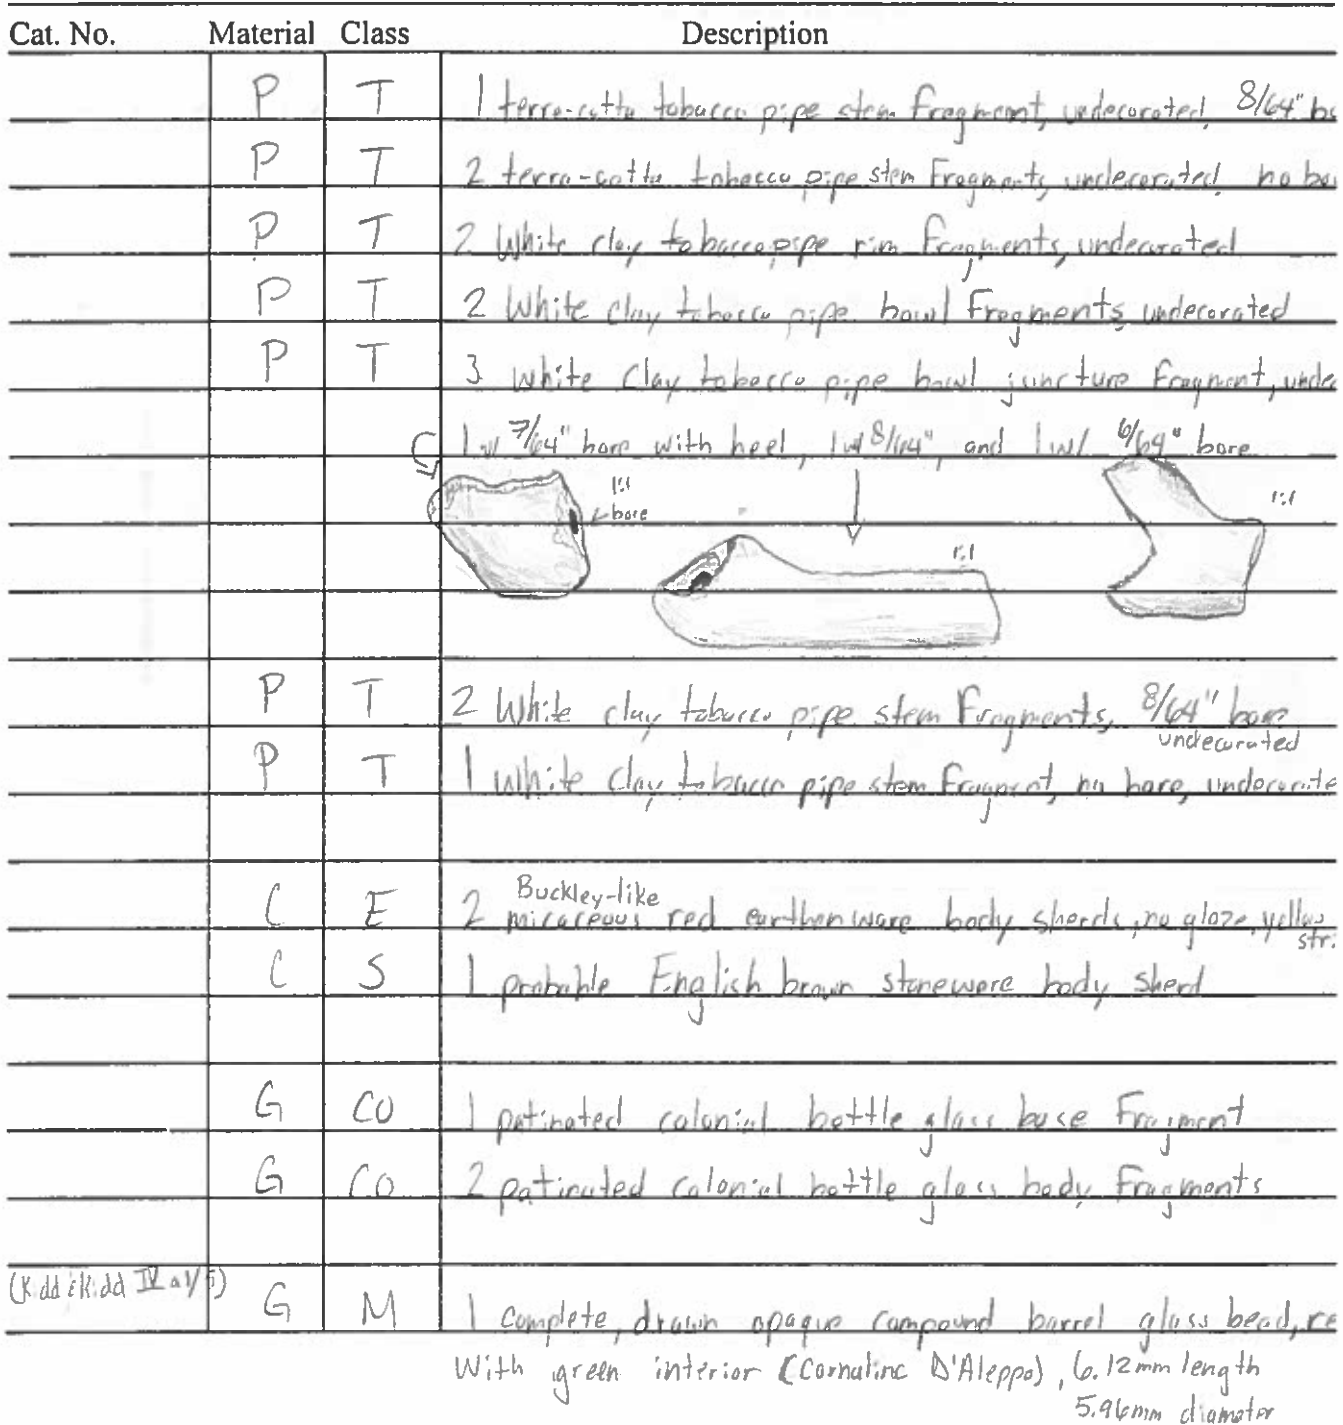 Cat. No. Material Class Description
P T 1 terra-cotta tobacco pipe stem fragment, undecorated, 8/64" bo
P T 2 terra-cotta tobacco pipe stem fragments, undecorated, no bo
P T 2 White clay tobacco pipe rim fragments, undecorated
P T 2 White clay tobacco pipe bowl fragments, undecorated
P T 3 White clay tobacco pipe bowl juncture fragment, unde
1 w/ 7/64" bore with heel, 1 w/ 8/64", and 1 w/ 6/64" bore
1:1
bore
1:1
1:1
P T 2 White clay tobacco pipe stem fragments, 8/64" bore
undecorated
P T 1 White clay tobacco pipe stem fragment, no bore, undecorate
Buckley-like
C E 2 micaceous red earthenware body sherds, no glaze, yellow
str.
C S 1 probable English brown stoneware body sherd
G CO 1 patinated colonial bottle glass base fragment
G CO 2 patinated colonial bottle glass body fragments
(Kidd & Kidd IVa1/5)
G M 1 complete, drawn opaque compound barrel glass bead, re
with green interior (Cornaline D'Aleppo), 6.12mm length
5.96mm diameter